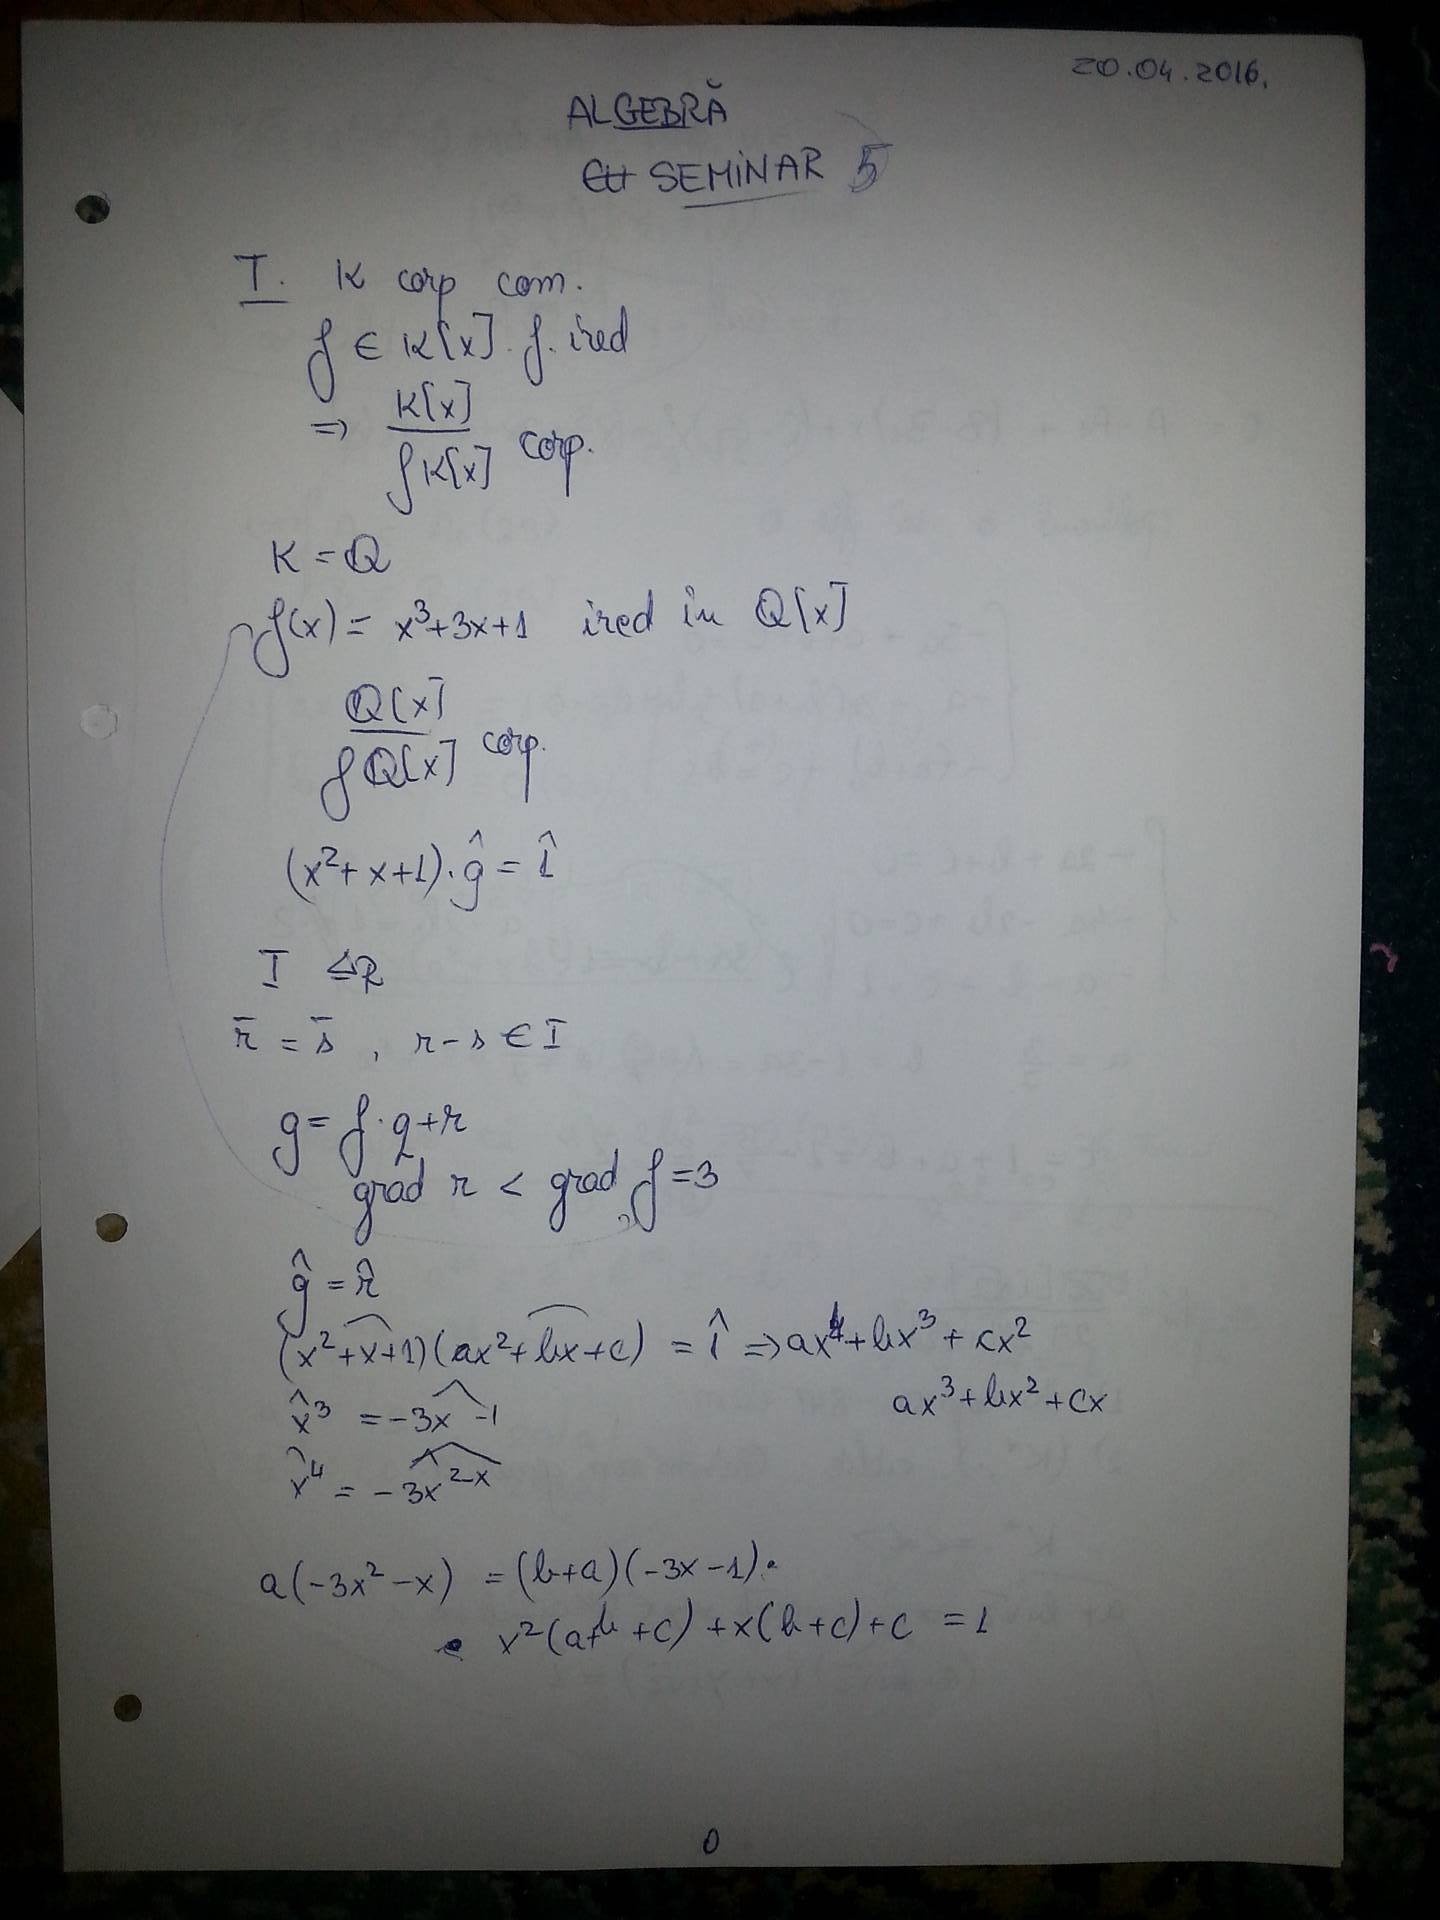 20.04.2016.
ALGEBRĂ
SEMINAR 5
I. K corp com.
f ∈ K[x]. f. ired
⇒ K[x] / fK[x] corp.
K = Q
f(x) = x³+3x+1 ired in Q[x]
Q[x] / fQ[x] corp.
(x²+x+1)·ĝ = 1̂
I ⊴ R
r̄ = s̄ , r-s ∈ I
g = f·q+r
grad r < grad f = 3
ĝ = r̂
(x²+x+1)(ax²+bx+c) = 1̂ ⇒ ax⁴+bx³+cx²
ax³+bx²+cx
x̂³ = -3x-1
x̂⁴ = -3x²-x
a(-3x²-x) = (b+a)(-3x-1).
x²(a+b+c)+x(b+c)+c = 1
0